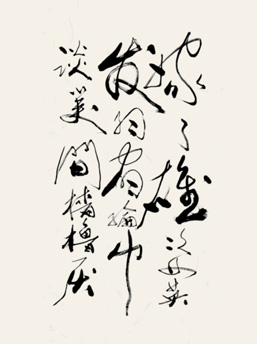 嫁了雄姿英
发羽扇纶巾
谈笑间樯橹灰